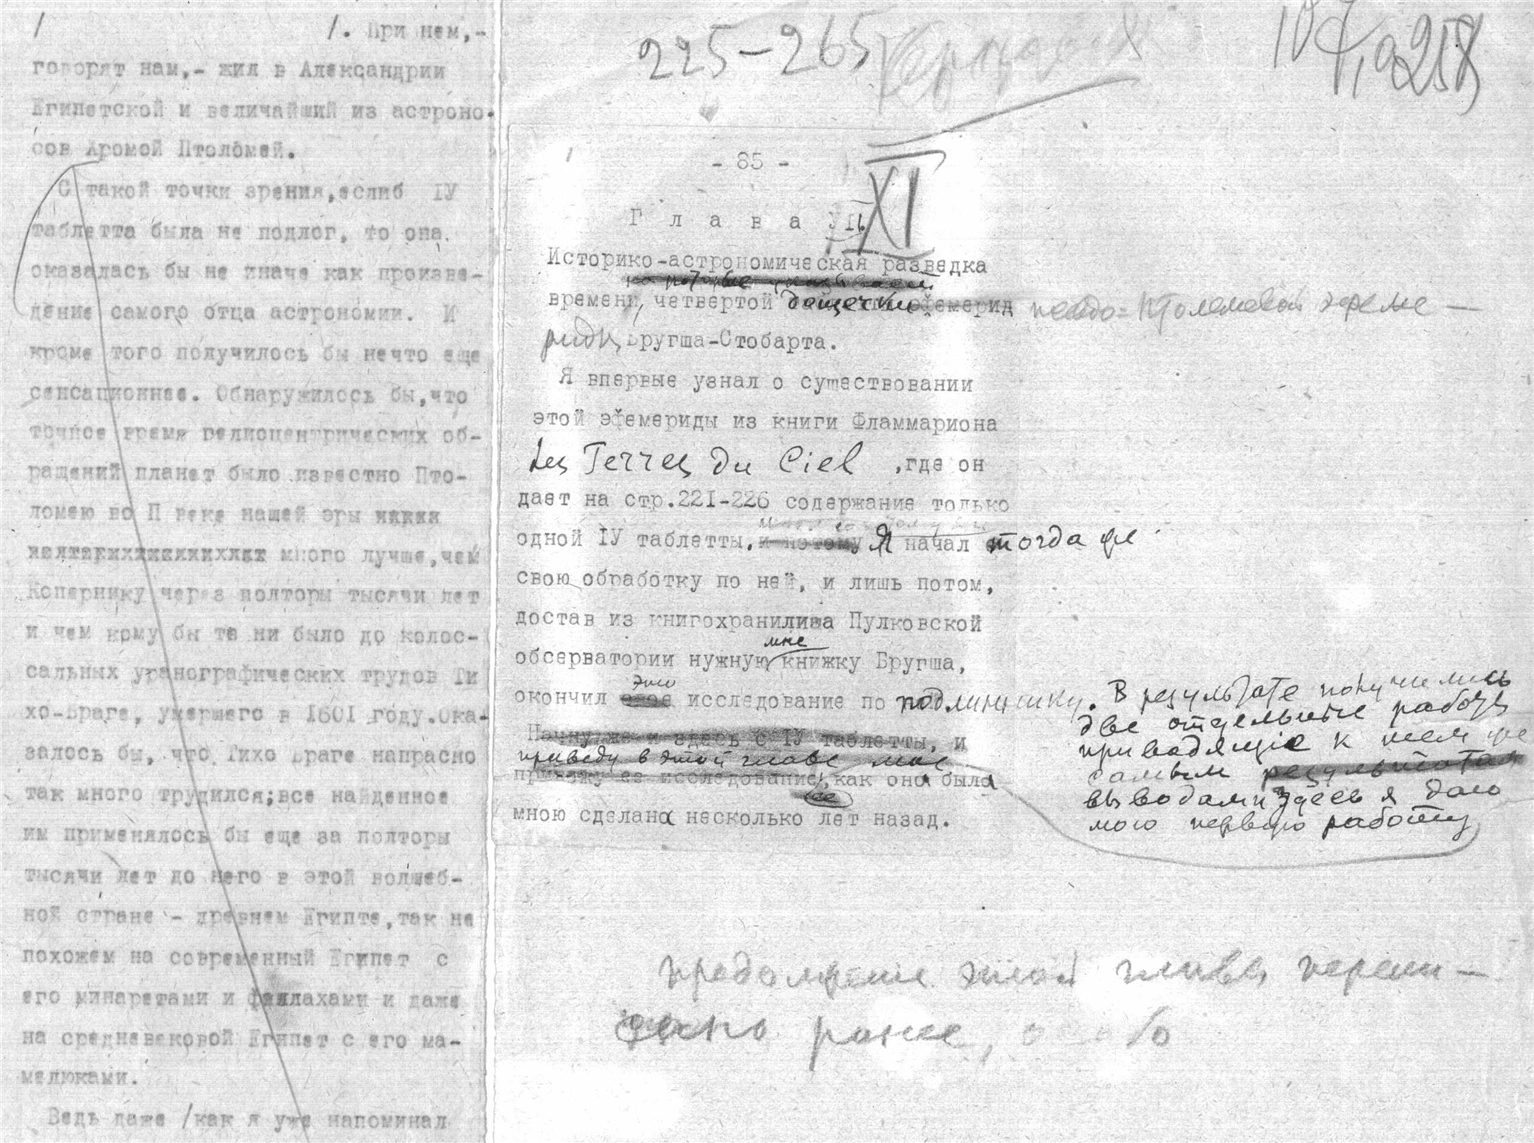 / /. При нем,-
говорят нам,- жил в Александрии
Египетской и величайший из астроно-
сов Аромой Птоломей.
С такой точки зрения,еслиб IУ
таблетта была не подлог, то она
оказалась бы не иначе как произве-
дение самого отца астрономии. И
кроме того получилось бы нечто еще
сенсационнее. Обнаружилось бы,что
точное время гелиоцентрических об-
ращений планет было известно Пто-
ломею во П веке нашей эры
много лучше,чем
Копернику через полторы тысячи лет
и чем кому бы то ни было до колос-
сальных уранографических трудов Ти
хо-Браге, умершего в 1601 году.Ока-
залось бы, что Тихо Браге напрасно
так много трудился;все найденное
им применялось бы еще за полторы
тысячи лет до него в этой волшеб-
ной стране - древнем Египте,так не
похожем на современный Египет с
его минаретами и феллахами и даже
на средневековой Египет с его ма-
мелюками.
Ведь даже /как я уже напоминал
225-265
258
- 85 -
Г л а в а УП.
XI
Историко-астрономическая разведка
времени четвертой дощечки эфемерид
псевдо-Птолемевой эфеме-
риды Бругша-Стобарта.
Я впервые узнал о существовании
этой эфемериды из книги Фламмариона
Les Terres du Ciel ,где он
дает на стр.221-226 содержание только
одной IУ таблетты, и потому Я начал тогда же
свою обработку по ней, и лишь потом,
достав из книгохранилища Пулковской
мне
обсерватории нужную книжку Бругша,
это
окончил свое исследование по подлиннику. В результате получились
две отдельные работы
приводящие к тем же
самым результатам
выводам и здесь я даю
мою первую работу
Начну же и здесь с IУ таблетты, и
приведу в этой главе мое
прикажу ее исследование, как она была
ее
мною сделана несколько лет назад.
продолжение этой главы перепи-
сано ранее,